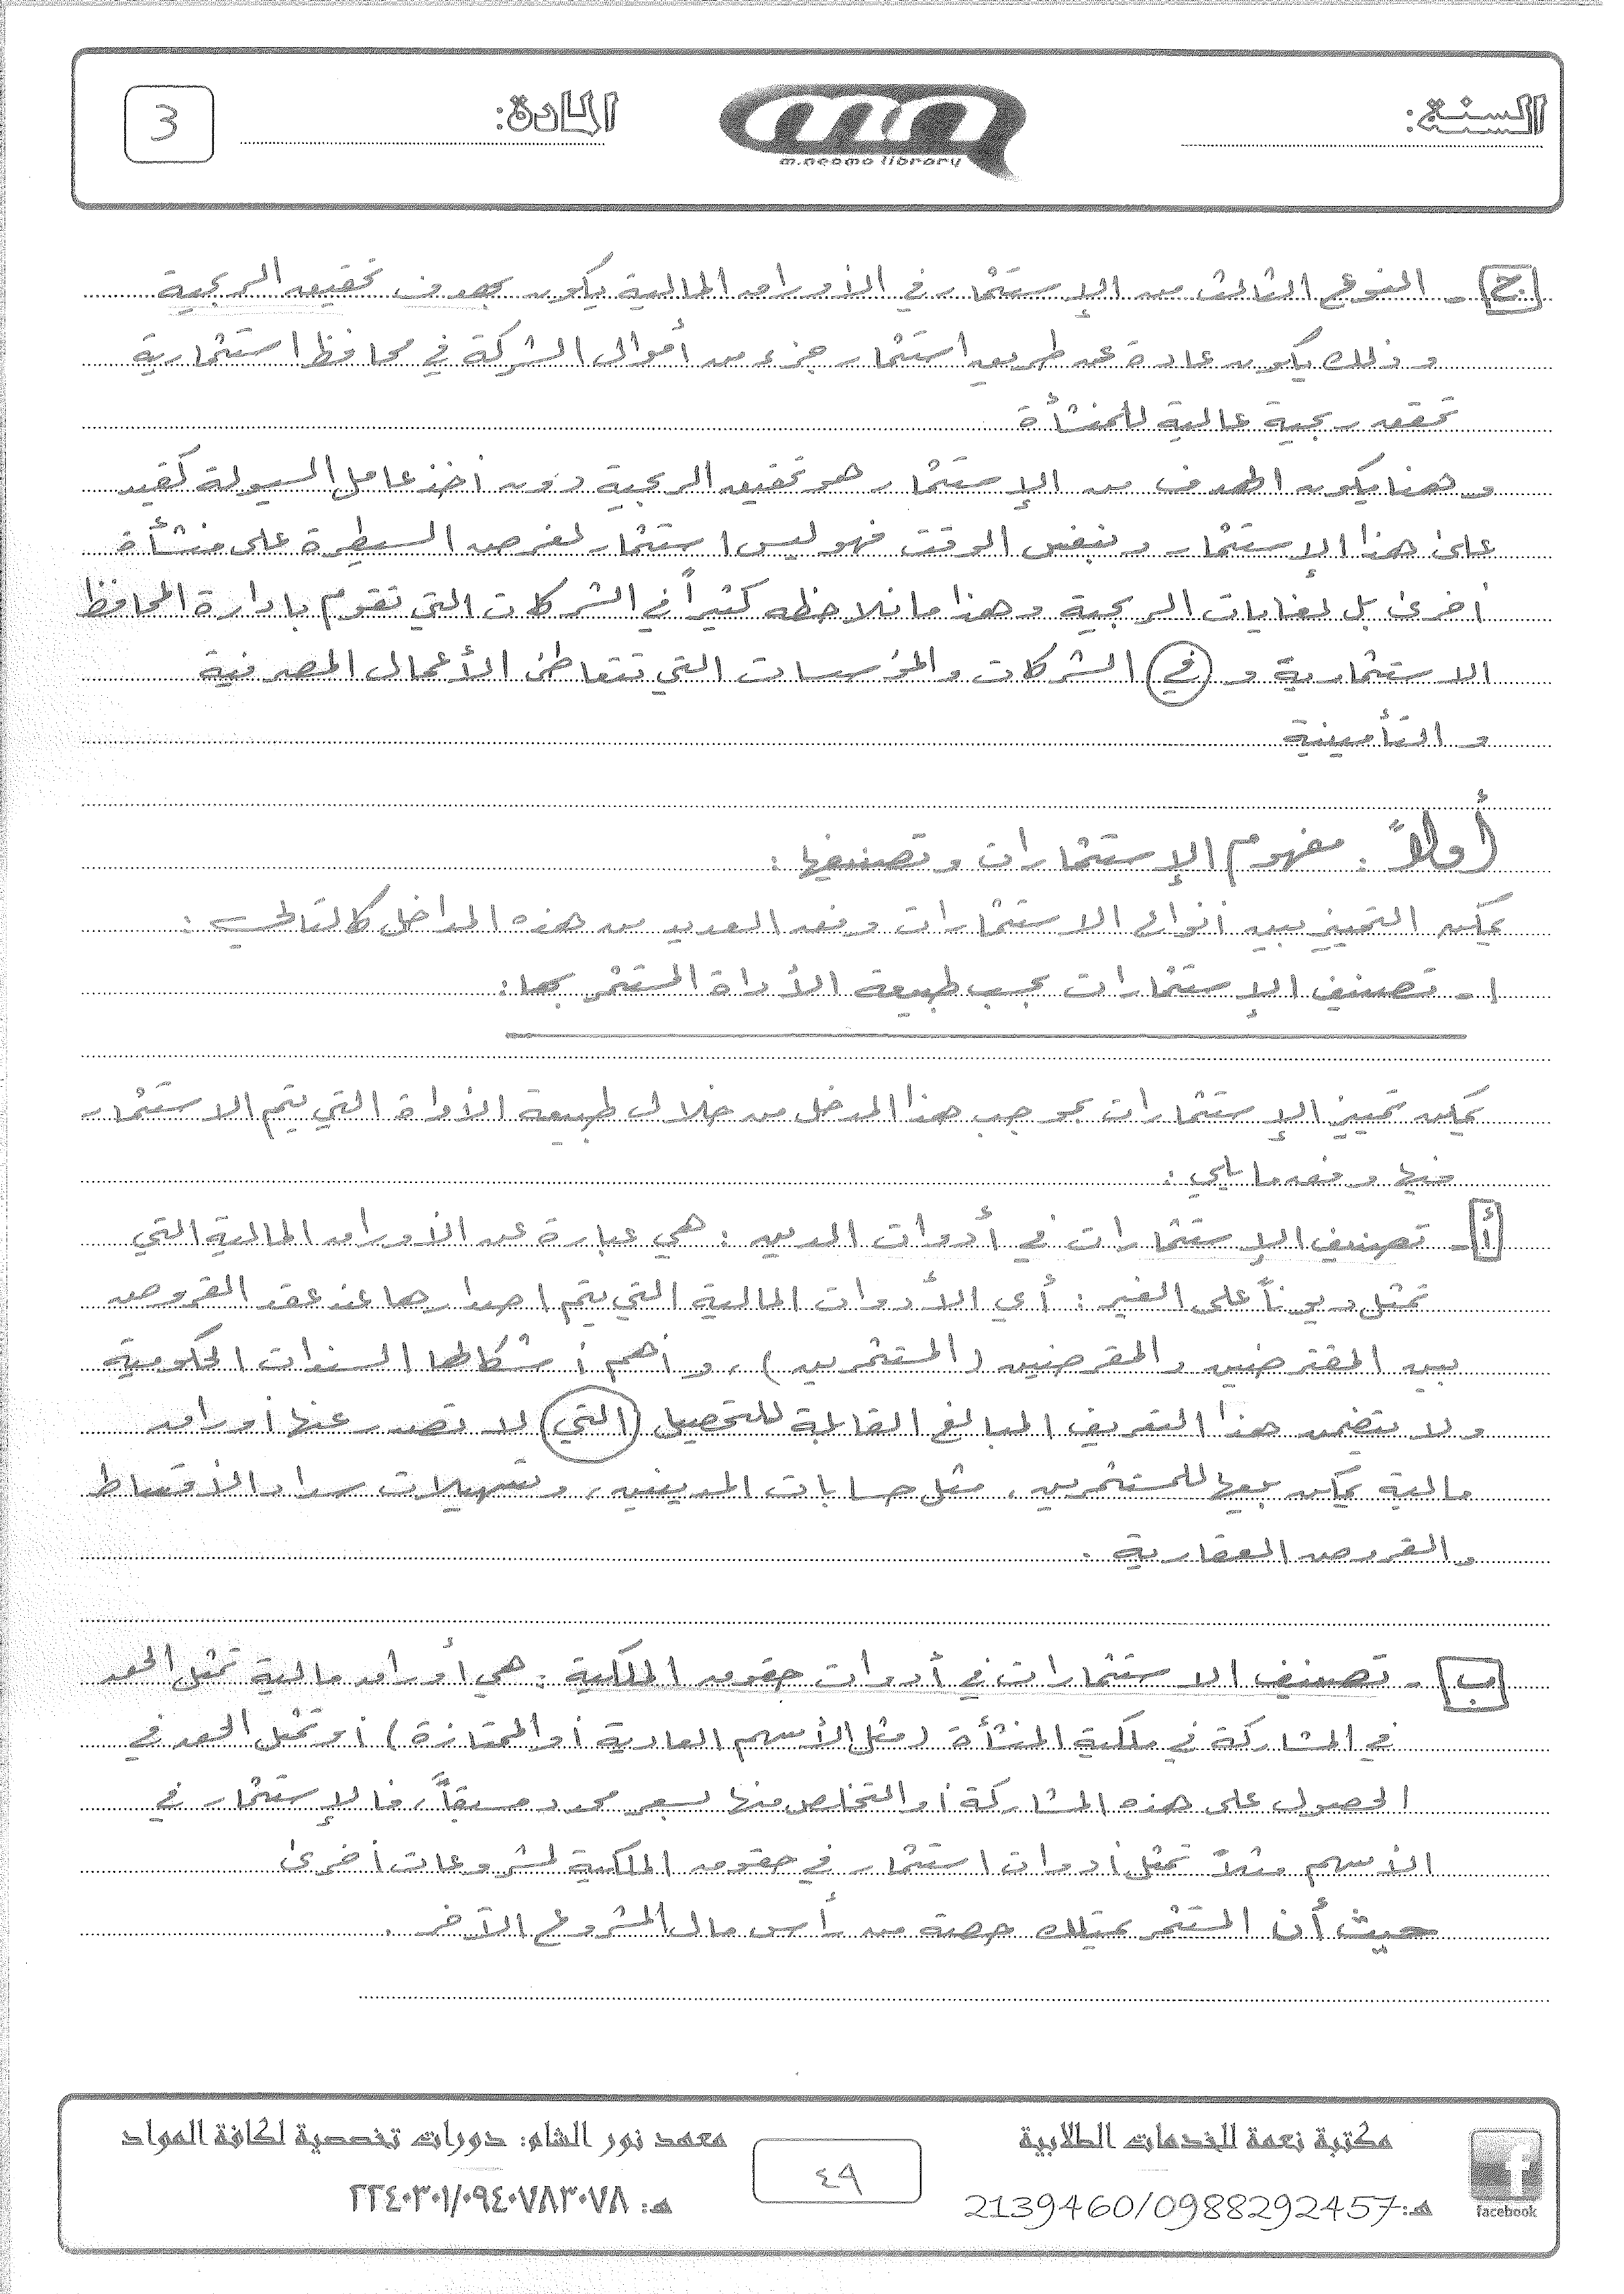 السنة:
m.neama library
المادة:
3
ج - النوع الثالث من الإستثمار في الأوراق المالية يكون بهدف تحقيق الربحية
وذلك يكون عادة عن طريق استثمار جزء من أموال الشركة في محافظ استثمارية
تحقق ربحية عالية للمنشأة
وهنا يكون الهدف من الإستثمار هو تحقيق الربحية دون أخذ عامل السيولة كقيد
على هذا الإستثمار وبنفس الوقت فهو ليس استثمار لغرض السيطرة على منشأة
أخرى بل لغايات الربحية وهذا ما نلاحظه كثيراً في الشركات التي تقوم بادارة المحافظ
الاستثمارية و في الشركات والمؤسسات التي تتعاطى الأعمال المصرفية
والتأمينية
أولاً: مفهوم الإستثمارات وتصنيفها:
يمكن التمييز بين أنواع الاستثمارات وفق العديد من هذه المداخل كالتالي:
١- تصنيف الإستثمارات بحسب طبيعة الأداة المستثمر بها:
يمكن تمييز الإستثمارات بموجب هذا المدخل من خلال طبيعة الأداة التي يتم الاستثمار
فيها وفق ما يلي:
أ - تصنيف الإستثمارات في أدوات الدين: هي عبارة عن الأوراق المالية التي
تمثل ديوناً على الغير: أي الأدوات المالية التي يتم اصدارها عند عقد القروض
بين المقترضين والمقرضين (المستثمرين)، وأهم أشكالها السندات الحكومية
ولا يتضمن هذا التعريف المبالغ القابلة للتحصيل التي لا تصدر عنها أوراق
مالية يمكن بيعها للمستثمرين، مثل حسابات المدينين، وتسهيلات سداد الأقساط
والقروض العقارية.
ب - تصنيف الاستثمارات في أدوات حقوق الملكية: هي أوراق مالية تمثل الحق
في المشاركة في ملكية المنشأة (مثل الأسهم العادية أو الممتازة) أو تمثل الحق في
الحصول على هذه المشاركة أو التخلص منها بسعر محدد مسبقاً، فالإستثمار في
الأسهم مثلاً تمثل أدوات استثمار في حقوق الملكية لمشروعات أخرى
حيث أن المستثمر يمتلك حصة من رأس مال المشروع الآخر.
facebook
مكتبة نعمة للخدمات الطلابية
هـ: 2139460/0988292457
٤٩
معهد نور الشام: دورات تخصصية لكافة المواد
هـ: ٢٢٤٠٣٠١/٠٩٤٠٧٨٣٠٧٨